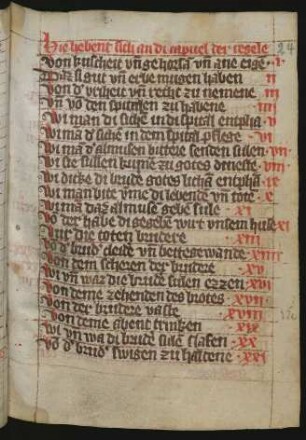 Hie hebent sich an di capitel der regele
Von kuscheit vn̄ gehorsā vn̄ ane eigē · i
Daz si gut vn̄ erbe mugen haben ii
Von d' vriheit vn̄ recht zu nemene iii
Vn̄ vō den spitalen zu habene iiii
Wi man di sichē in di spital entpha v
Wi mā d' sichē in dem spital pflege · vi
Wi mā d' almusen bittere senden sullen · vii
Wi sie sullen kumē zu gotes dieneste · viii
Wi dicke di brudē gotes lichā entphā ix
Wi man bite vmē di lebende vn̄ tote x
Wi mā daz almuse gebē sule · xi
Vō der habe di gegebē wirt in unsem huse xii
Vur die toten brudere xiii
Vō d' brudē cleidē vn̄ bettegewande xiiii
Von dem scheren der brudere xv
Wi vn̄ waz die brudē sulen ezzen xvi
Von deme zehenden des brotes · xvii
Von der brudere vaste · xviii
Von deme abent trinken xix
Wi vn̄ wa di brudē sulē slafen · xx
Vō d' brudē swigen zu haltene · xxi